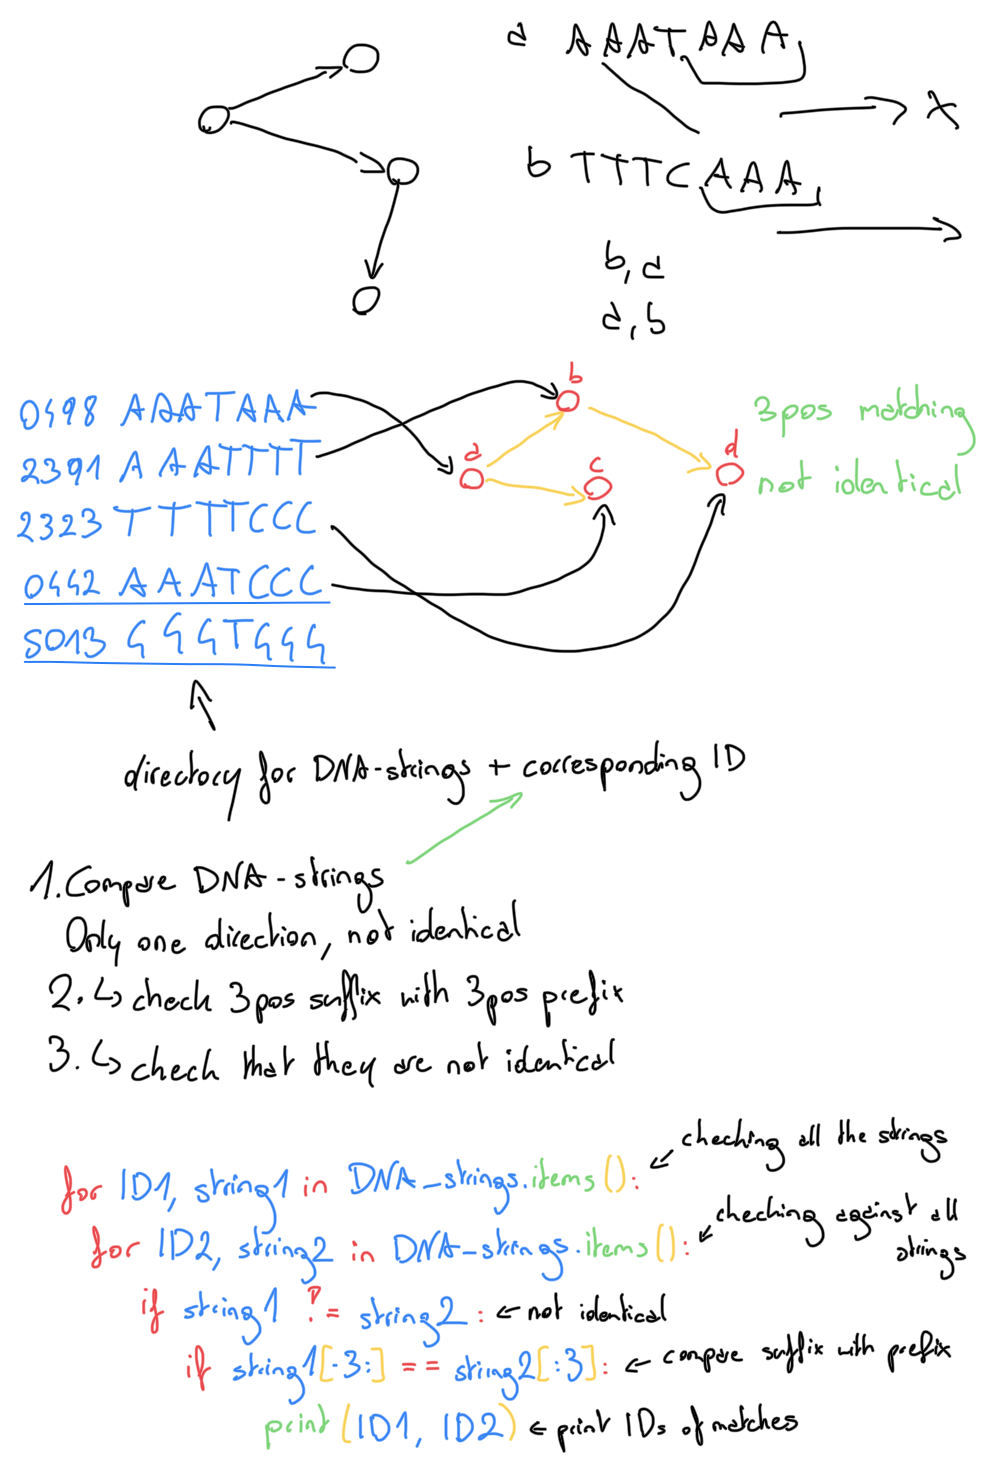 a AAATAAA
x
b TTTCAAA
b,a
a,b
0498 AAATAAA
2391 AAATTTT
2323 TTTTCCC
0442 AAATCCC
5013 GGGTGGG
b
a
c
d
3pos matching
not identical
directory for DNA-strings + corresponding ID
1. Compare DNA-strings
Only one direction, not identical
2. ↳ check 3pos suffix with 3pos prefix
3. ↳ check that they are not identical
for ID1, string1 in DNA_strings.items(): ← checking all the strings
for ID2, string2 in DNA_strings.items(): ← checking against all strings
if string1 != string2 : ← not identical
if string1[-3:] == string2[:3]: ← compare suffix with prefix
print (ID1, ID2) ← print IDs of matches